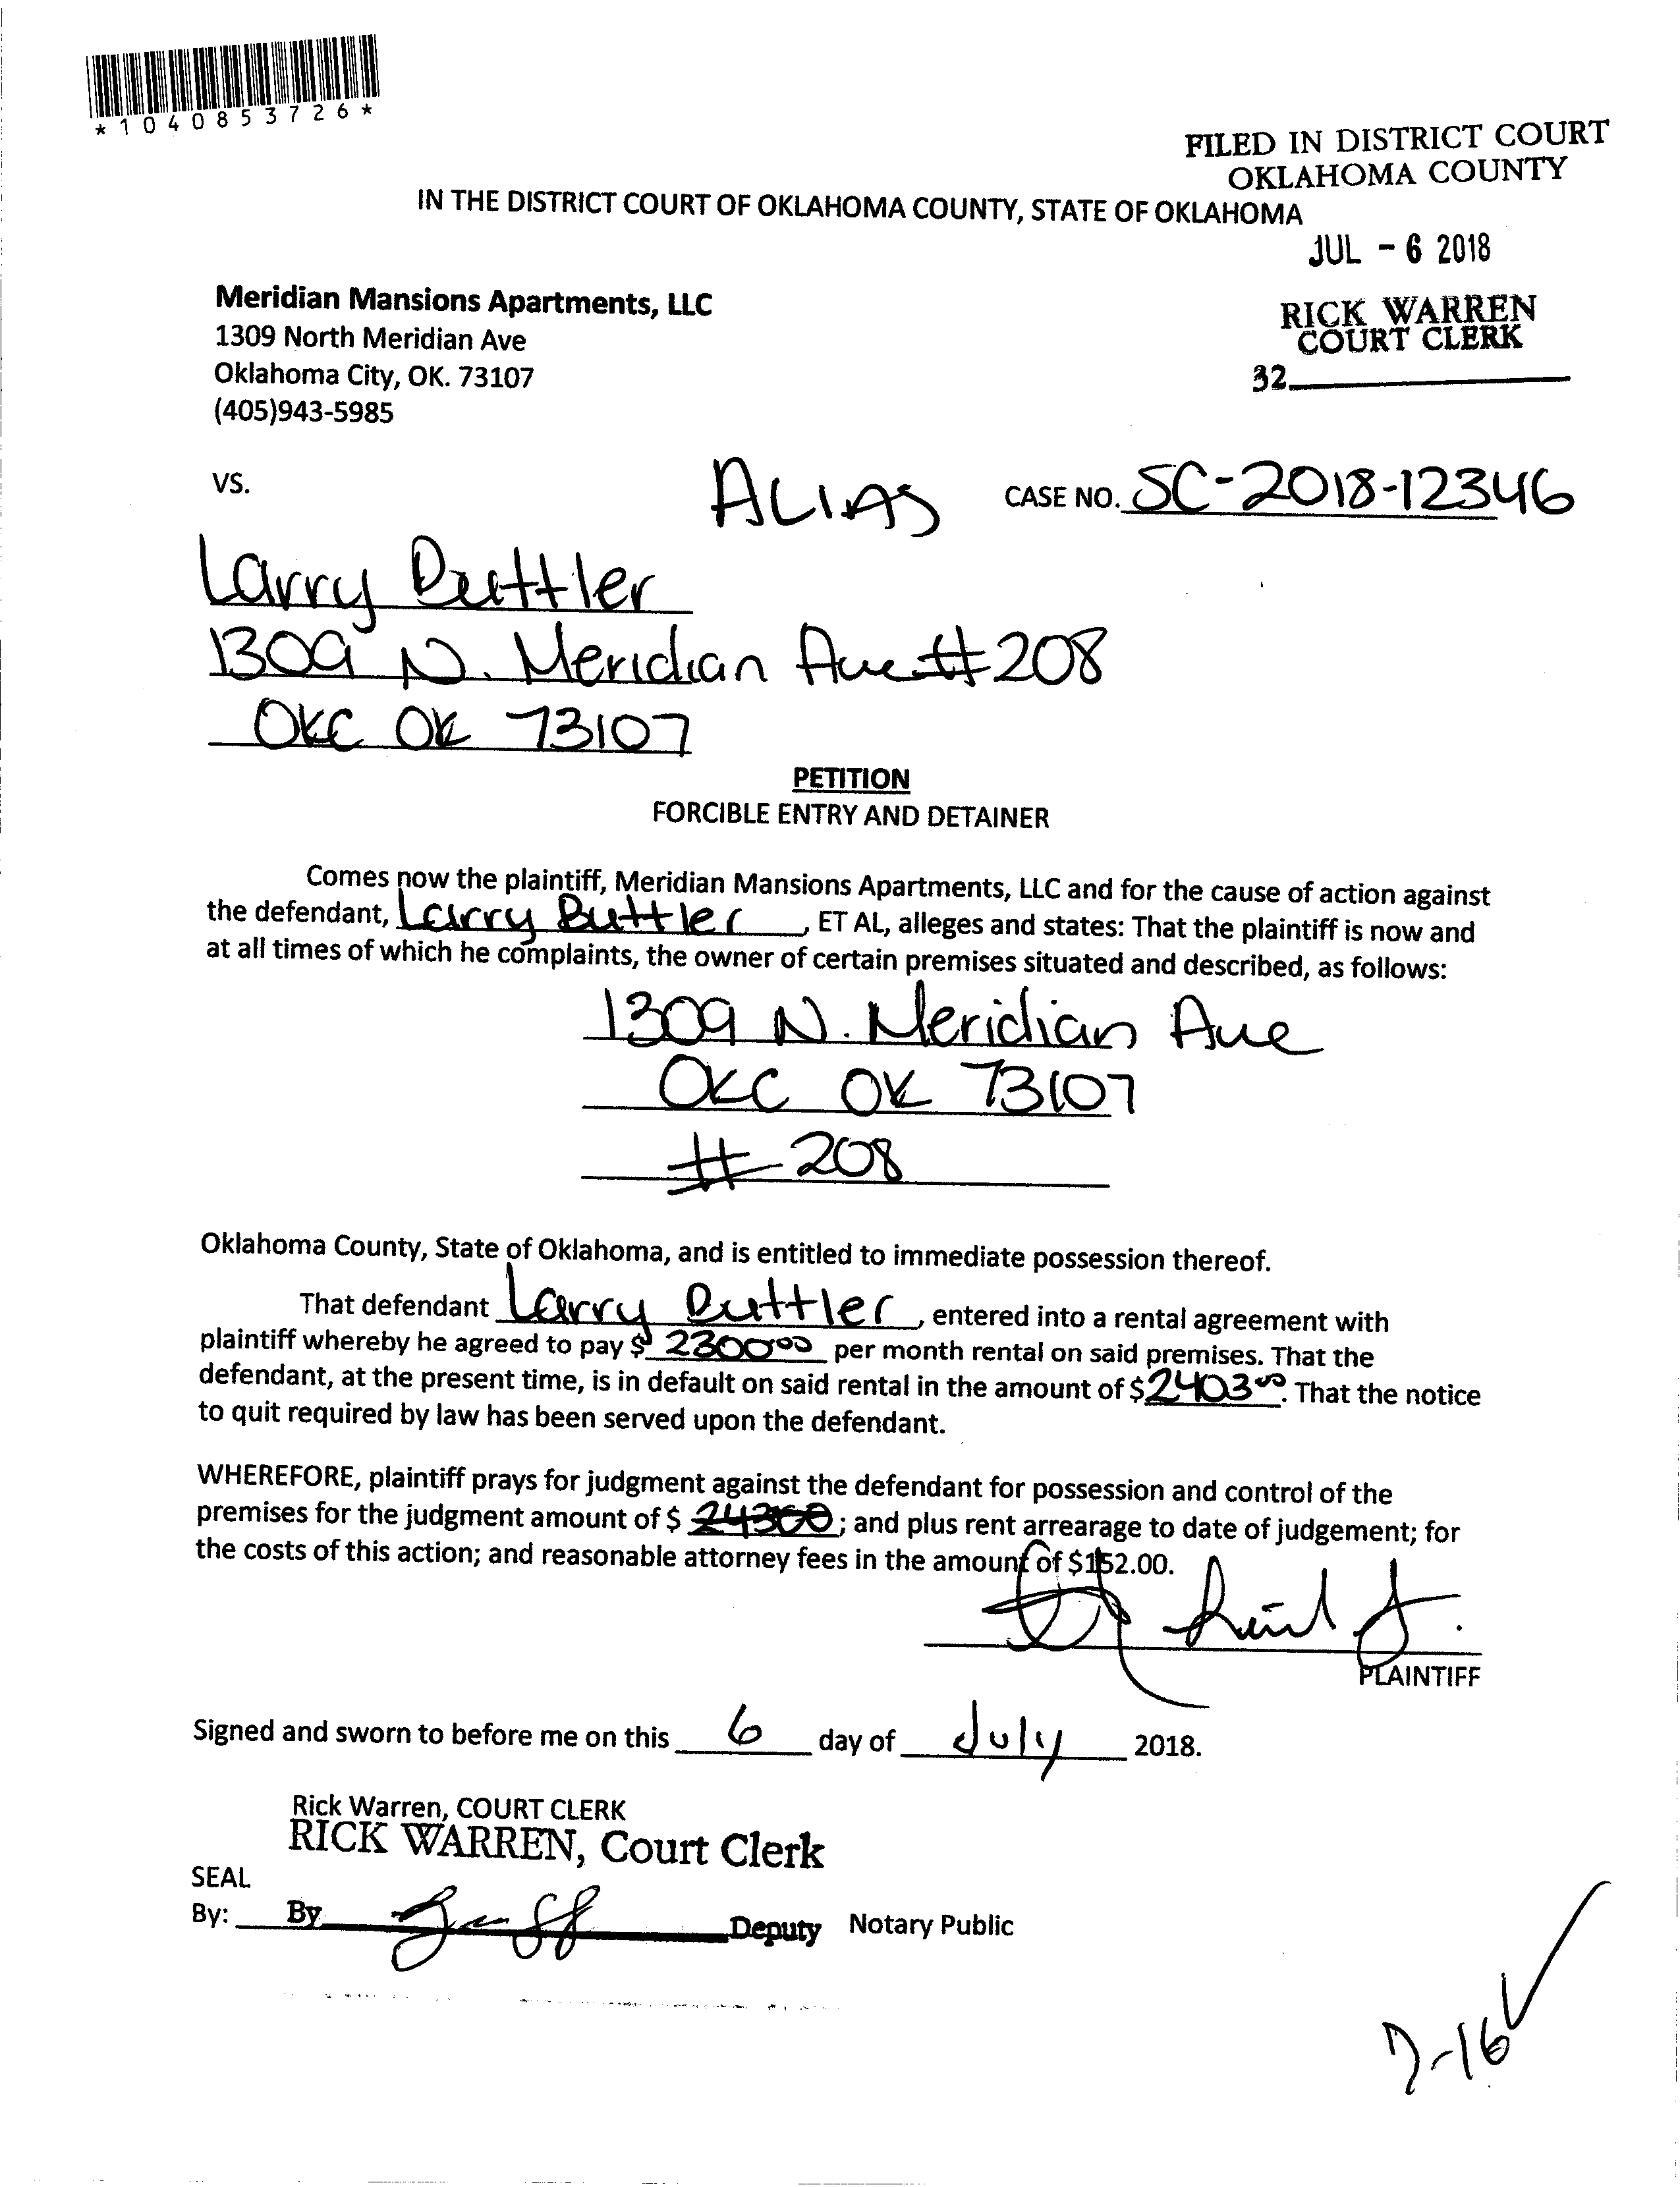 *1040853726*
FILED IN DISTRICT COURT
OKLAHOMA COUNTY
IN THE DISTRICT COURT OF OKLAHOMA COUNTY, STATE OF OKLAHOMA
JUL - 6 2018
Meridian Mansions Apartments, LLC
1309 North Meridian Ave
Oklahoma City, OK. 73107
(405)943-5985
RICK WARREN
COURT CLERK
32
VS.
ALIAS
CASE NO. SC-2018-12346
Larry Buttler
1309 N. Meridian Ave #208
OKC OK 73107
PETITION
FORCIBLE ENTRY AND DETAINER
Comes now the plaintiff, Meridian Mansions Apartments, LLC and for the cause of action against
the defendant, Larry Buttler, ET AL, alleges and states: That the plaintiff is now and
at all times of which he complaints, the owner of certain premises situated and described, as follows:
1309 N. Meridian Ave
OKC OK 73107
# 208
Oklahoma County, State of Oklahoma, and is entitled to immediate possession thereof.
That defendant Larry Buttler, entered into a rental agreement with
plaintiff whereby he agreed to pay $ 230000 per month rental on said premises. That the
defendant, at the present time, is in default on said rental in the amount of $240300. That the notice
to quit required by law has been served upon the defendant.
WHEREFORE, plaintiff prays for judgment against the defendant for possession and control of the
premises for the judgment amount of $ ; and plus rent arrearage to date of judgement; for
the costs of this action; and reasonable attorney fees in the amount of $152.00.
PLAINTIFF
Signed and sworn to before me on this 6 day of July 2018.
Rick Warren, COURT CLERK
RICK WARREN, Court Clerk
SEAL
By: By Deputy Notary Public
7-16